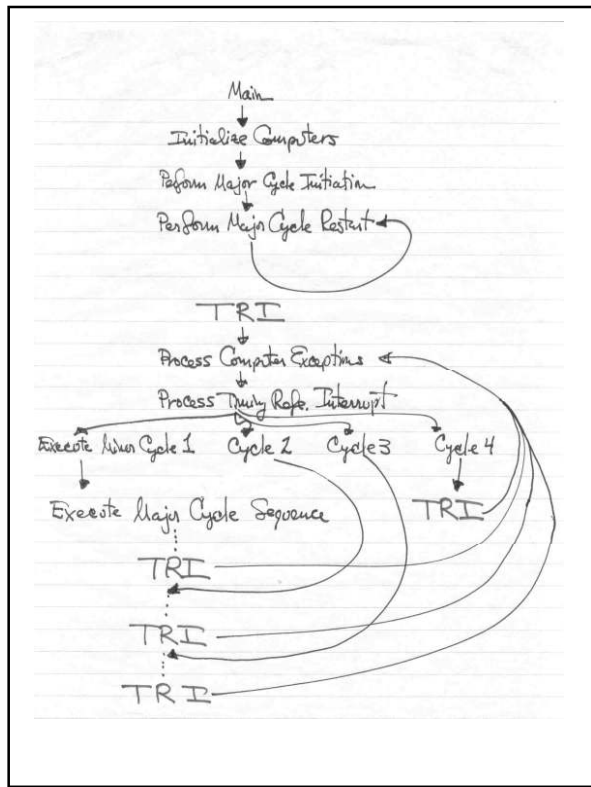 Main
Initialize Computers
Perform Major Cycle Initiation
Perform Major Cycle Restart
TRI
Process Computer Exceptions
Process Timing Refe. Interrupt
Execute Minor Cycle 1 Cycle 2 Cycle 3 Cycle 4
Execute Major Cycle Sequence TRI
TRI
TRI
TRI